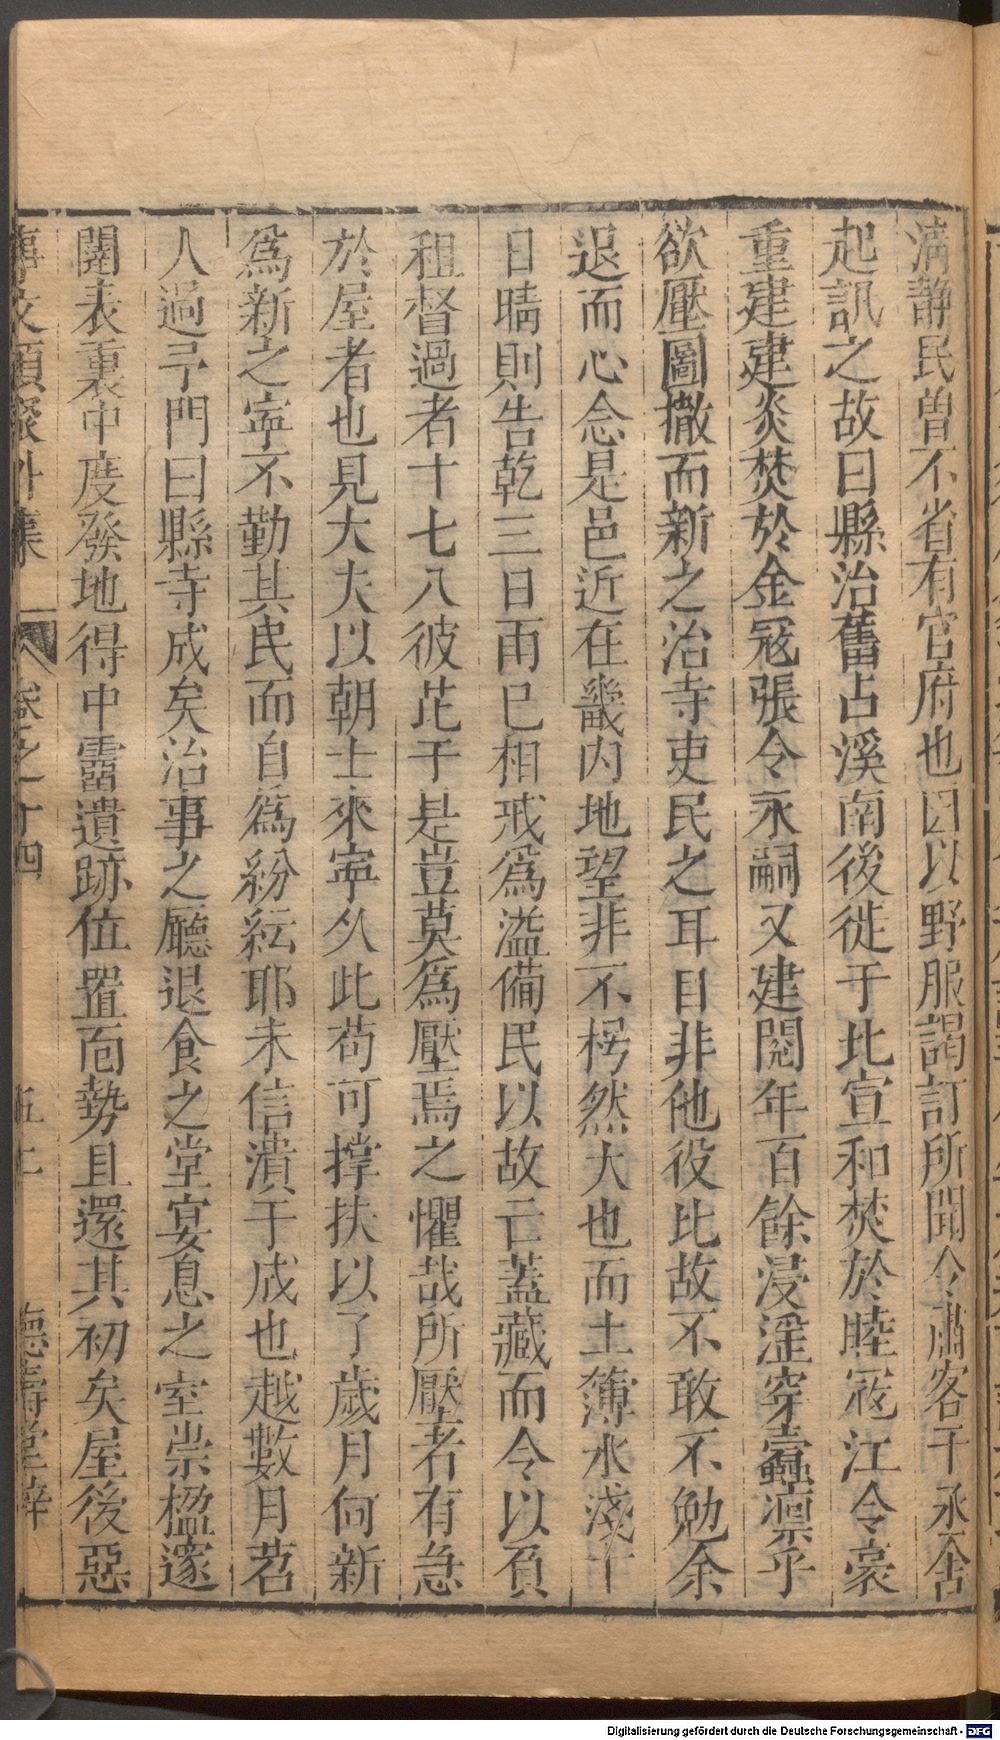 清靜民曾不省有官府也因以野服謁訂所聞令肅客于丞舍
起訊之故曰縣治舊占溪南後徙于比宣和焚於睦冦江令豪
重建建炎焚於金冦張令永嗣又建閱年百餘浸淫穿蠧凛乎
欲壓圖撤而新之治寺吏民之耳目非他役比故不敢不勉余
退而心念是邑近在畿内地望非不枵然大也而土薄水淺十
日晴則告乾三日雨已相戒為溢備民以故亡蓋藏而令以負
租督過者十七八彼芘于是豈莫為壓焉之懼哉所壓者有急
於屋者也見大夫以朝士來寜乆此苟可撑扶以了歲月何新
為新之寧不勤其民而自為紛紜耶未信潰于成也越數月茗
人過予門曰縣寺成矣治事之廳退食之堂宴息之室崇楹邃
闥表裏中度發地得中霤遺跡位置面勢且還其初矣屋後惡
事文類聚外集 卷之十四 五十二 德壽堂梓
Digitalisierung gefördert durch die Deutsche Forschungsgemeinschaft - DFG